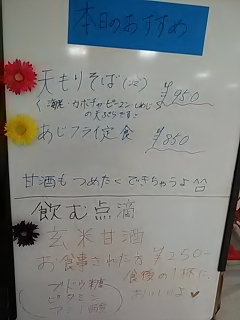 本日のおすすめ
天もりそば(冷) ¥950
(海老・カボチャ・ピーマン・しめじ
の天ぷらです)
あじフライ定食 ¥850
甘酒もつめたくできちゃうよ
飲む点滴
玄米甘酒
お食事された方 ¥250-
食後の1杯に
おいしいよ♥
ブドウ糖
ビタミン
アミノ酸